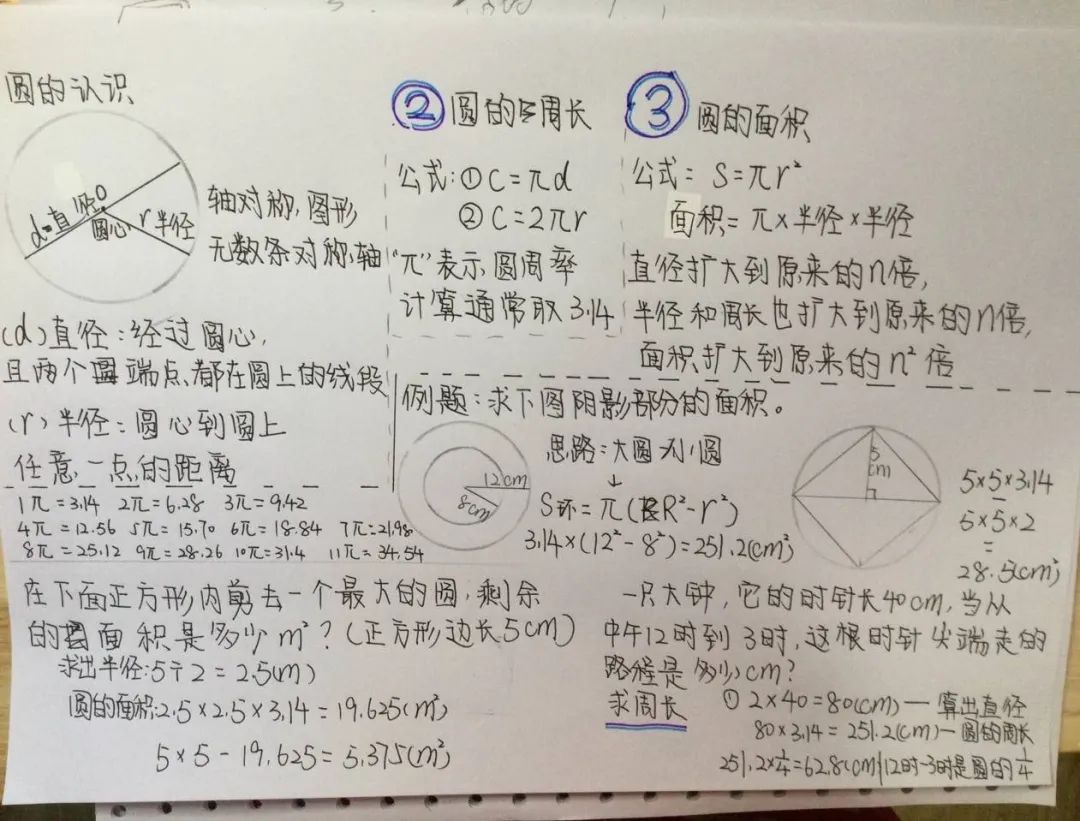 圆的认识
d=直径
O
圆心
r 半径
轴对称图形
无数条对称轴
(d)直径:经过圆心,
且两个端点都在圆上的线段
(r)半径:圆心到圆上
任意一点的距离
1π=3.14 2π=6.28 3π=9.42
4π=12.56 5π=15.70 6π=18.84 7π=21.98
8π=25.12 9π=28.26 10π=31.4 11π=34.54
② 圆的周长
公式:①C=πd
②C=2πr
"π"表示圆周率
计算通常取3.14
③ 圆的面积
公式: S=πr²
面积=π×半径×半径
直径扩大到原来的n倍,
半径和周长也扩大到原来的n倍,
面积扩大到原来的n²倍
例题:求下图阴影部分的面积。
12cm
8cm
思路:大圆-小圆
↓
S环=π(R²-r²)
3.14×(12²-8²)=251.2(cm²)
5
cm
5×5×3.14
-
5×5×2
=
28.5(cm²)
在下面正方形内剪去一个最大的圆,剩余
的面积是多少m²?(正方形边长5cm)
求出半径:5÷2=2.5(m)
圆的面积:2.5×2.5×3.14=19.625(m²)
5×5-19.625=5.375(m²)
一只大钟,它的时针长40cm,当从
中午12时到3时,这根时针尖端走的
路程是多少cm?
求周长
①2×40=80(cm)—算出直径
80×3.14=251.2(cm)—圆的周长
251.2×1/4=62.8(cm)|12时-3时是圆的1/4